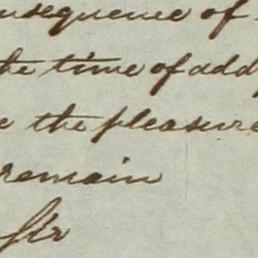 nsequence of
he time of add
e the pleasure
remain
Sir